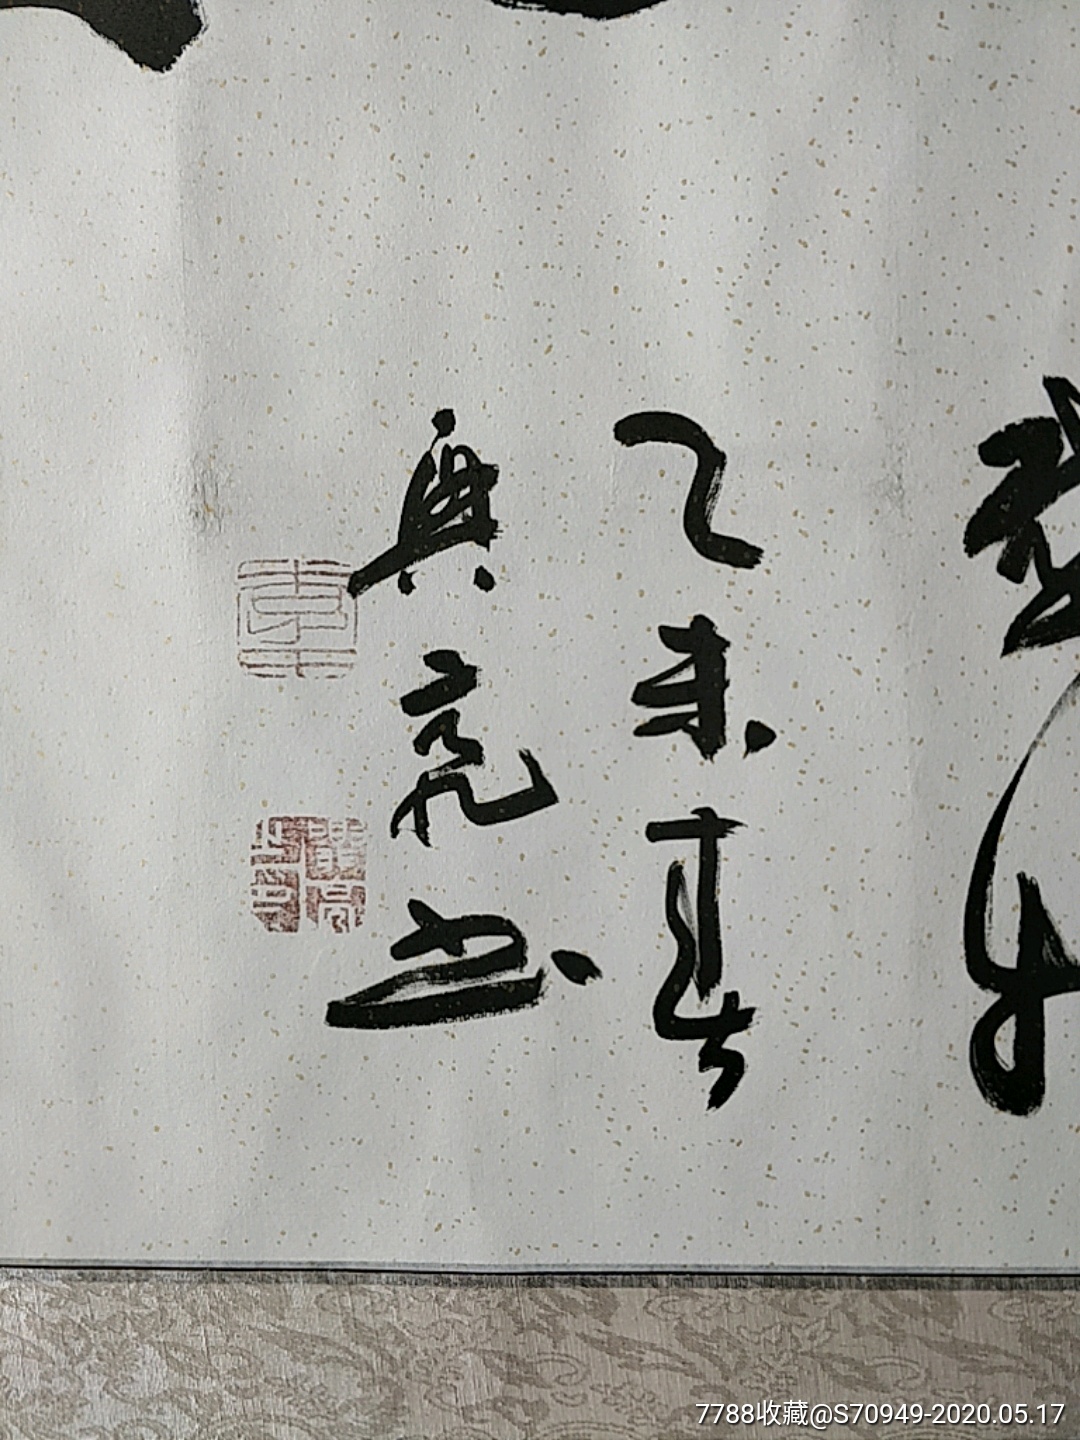 乙未春
興亮书
興亮之印
7788收藏@S70949-2020.05.17